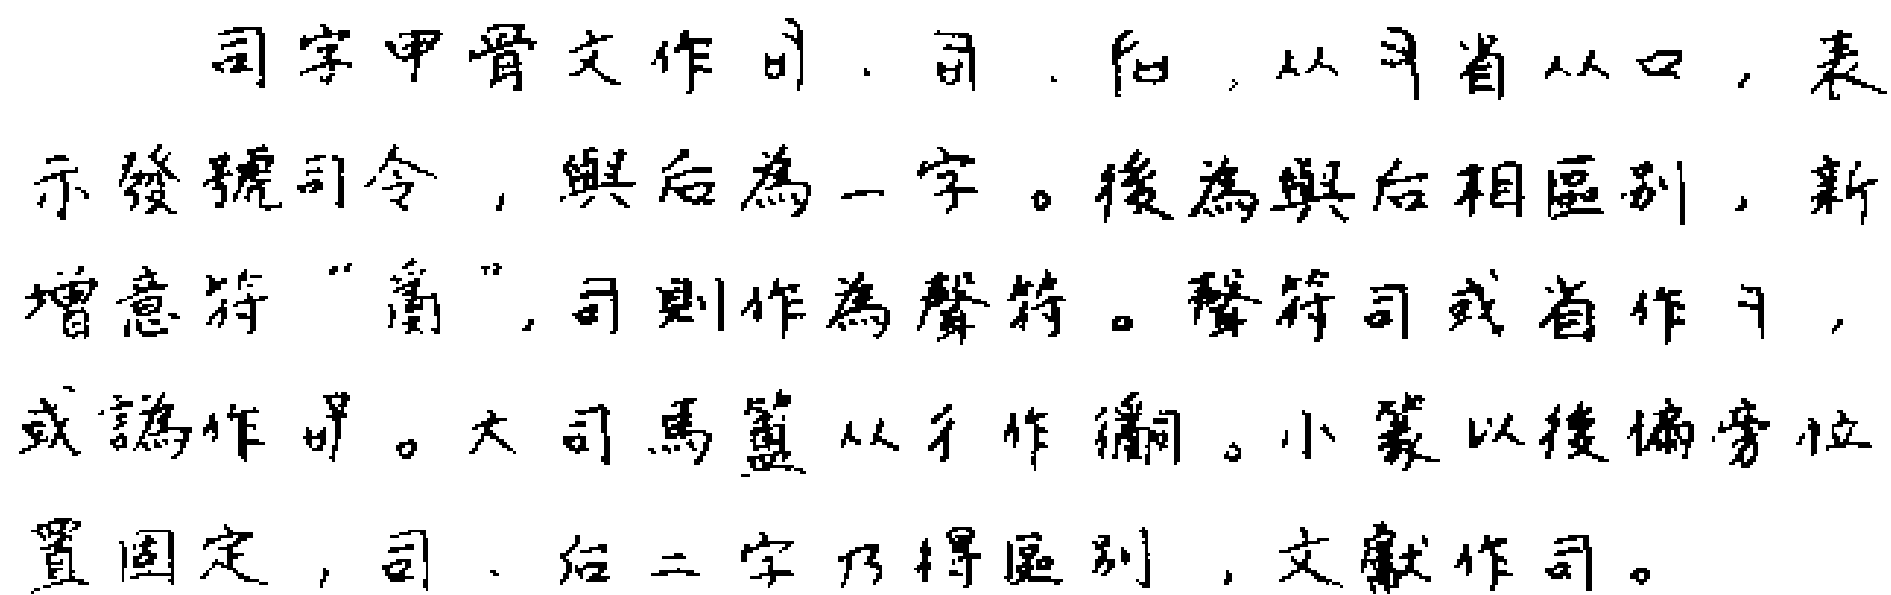 司字甲骨文作、司、,从省从口,表
示發號司令,與后為一字。後為與后相區別,新
增意符“𤔔”,司則作為聲符。聲符司或省作,
或譌作。大司馬簠从彳作。小篆以後偏旁位
置固定,司、后二字乃得區別,文獻作司。